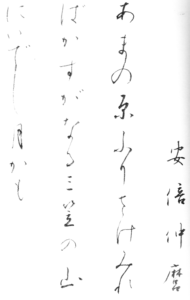 安倍仲麿
あまの原ふりさけみれ
ばかすがなる三笠の山
にいでし月かも